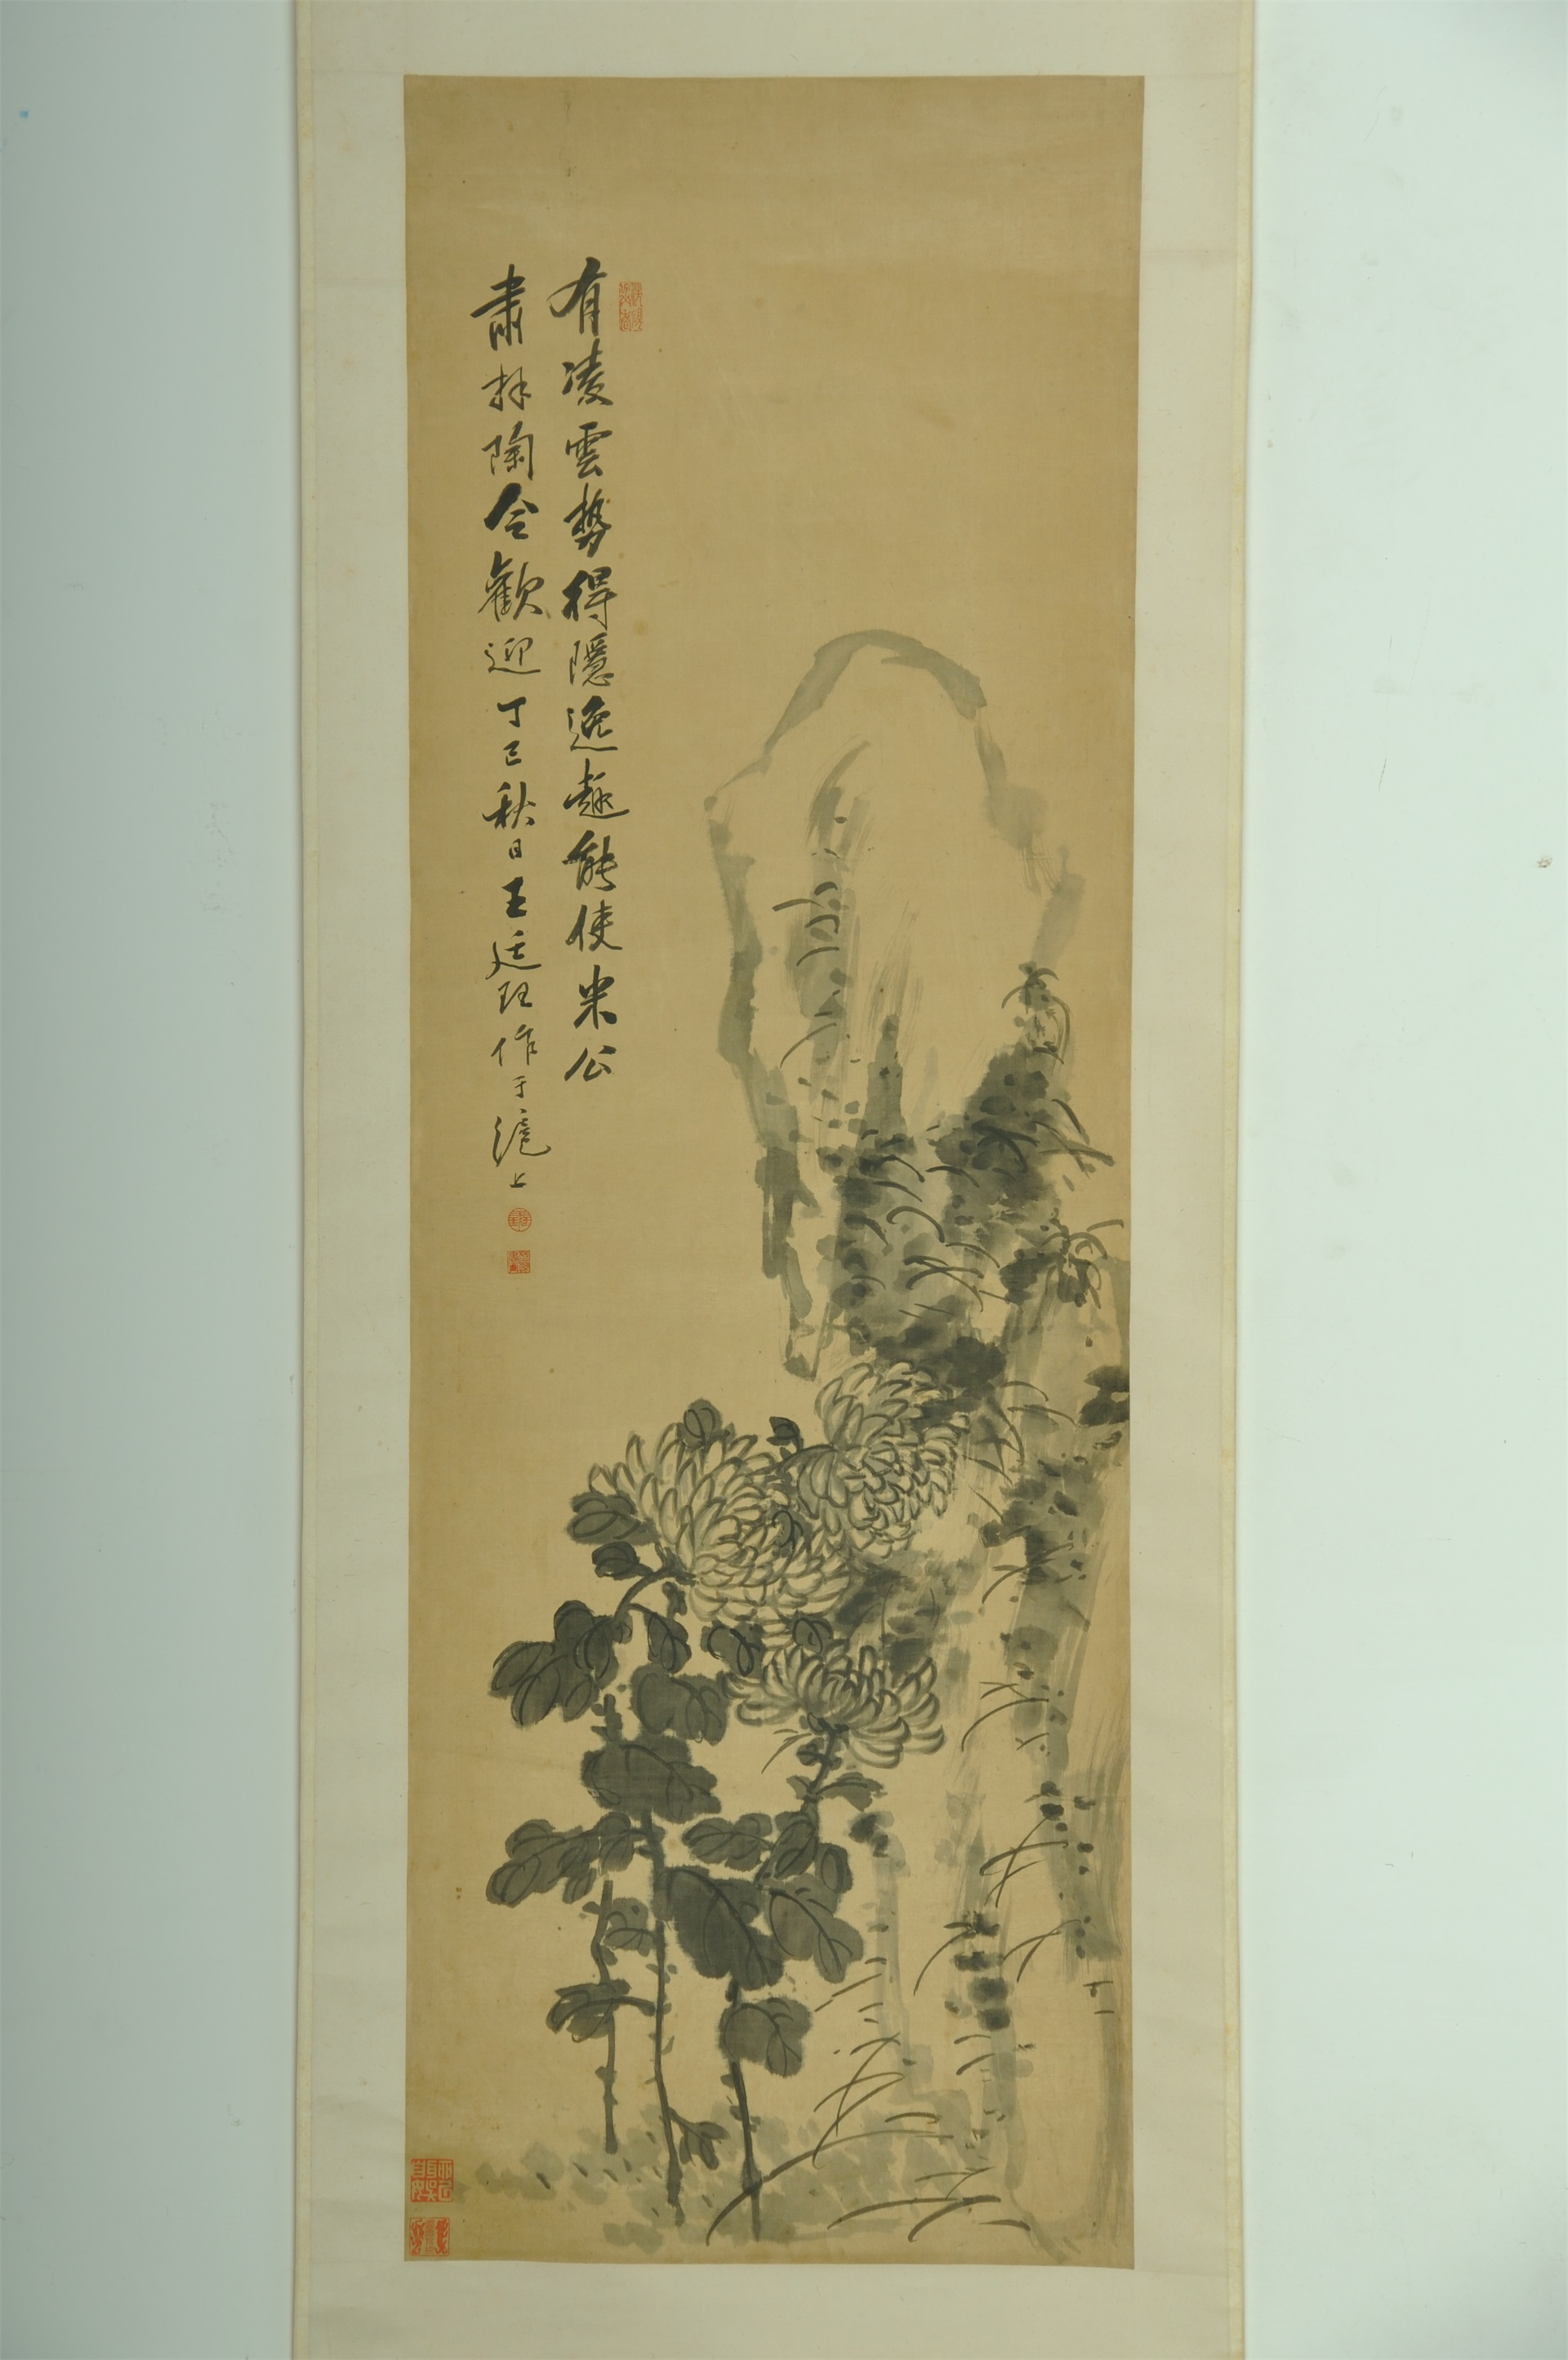 有凌雲勢得隱逸趣能使米公
肅拜陶令歡迎丁巳秋日王廷珏作于滬上